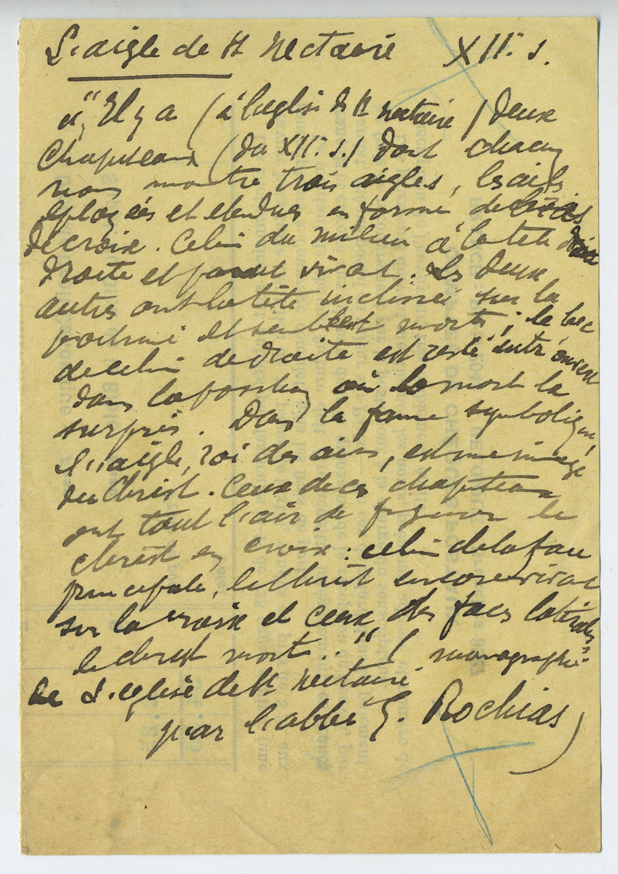 L'aigle de St Nectaire XIIe s.
"Il y a (à l'église de St Nectaire) deux
chapiteaux (du XIIe s.) dont chacun
nous montre trois aigles, les ailes
éployées et étendues en forme de bras
de croix. Celui du milieu à la tête
droite et parait vivant. Les deux
autres ont la tête inclinée sur la
poitrine et semblent morts ; le bec
de celui de droite est resté entr'ouvert
dans la position où la mort l'a
surpris. Dans la faune symbolique,
l'aigle, roi des airs, est une image
du Christ. Ceux de ces chapiteaux
ont tout l'air de figurer le
christ en croix : celui de la face
principale, le Christ encore vivant
sur la croix et ceux des faces latérales
le christ mort.." (monographie
de l'église de St Nectaire
par l'abbé G. Rochias)